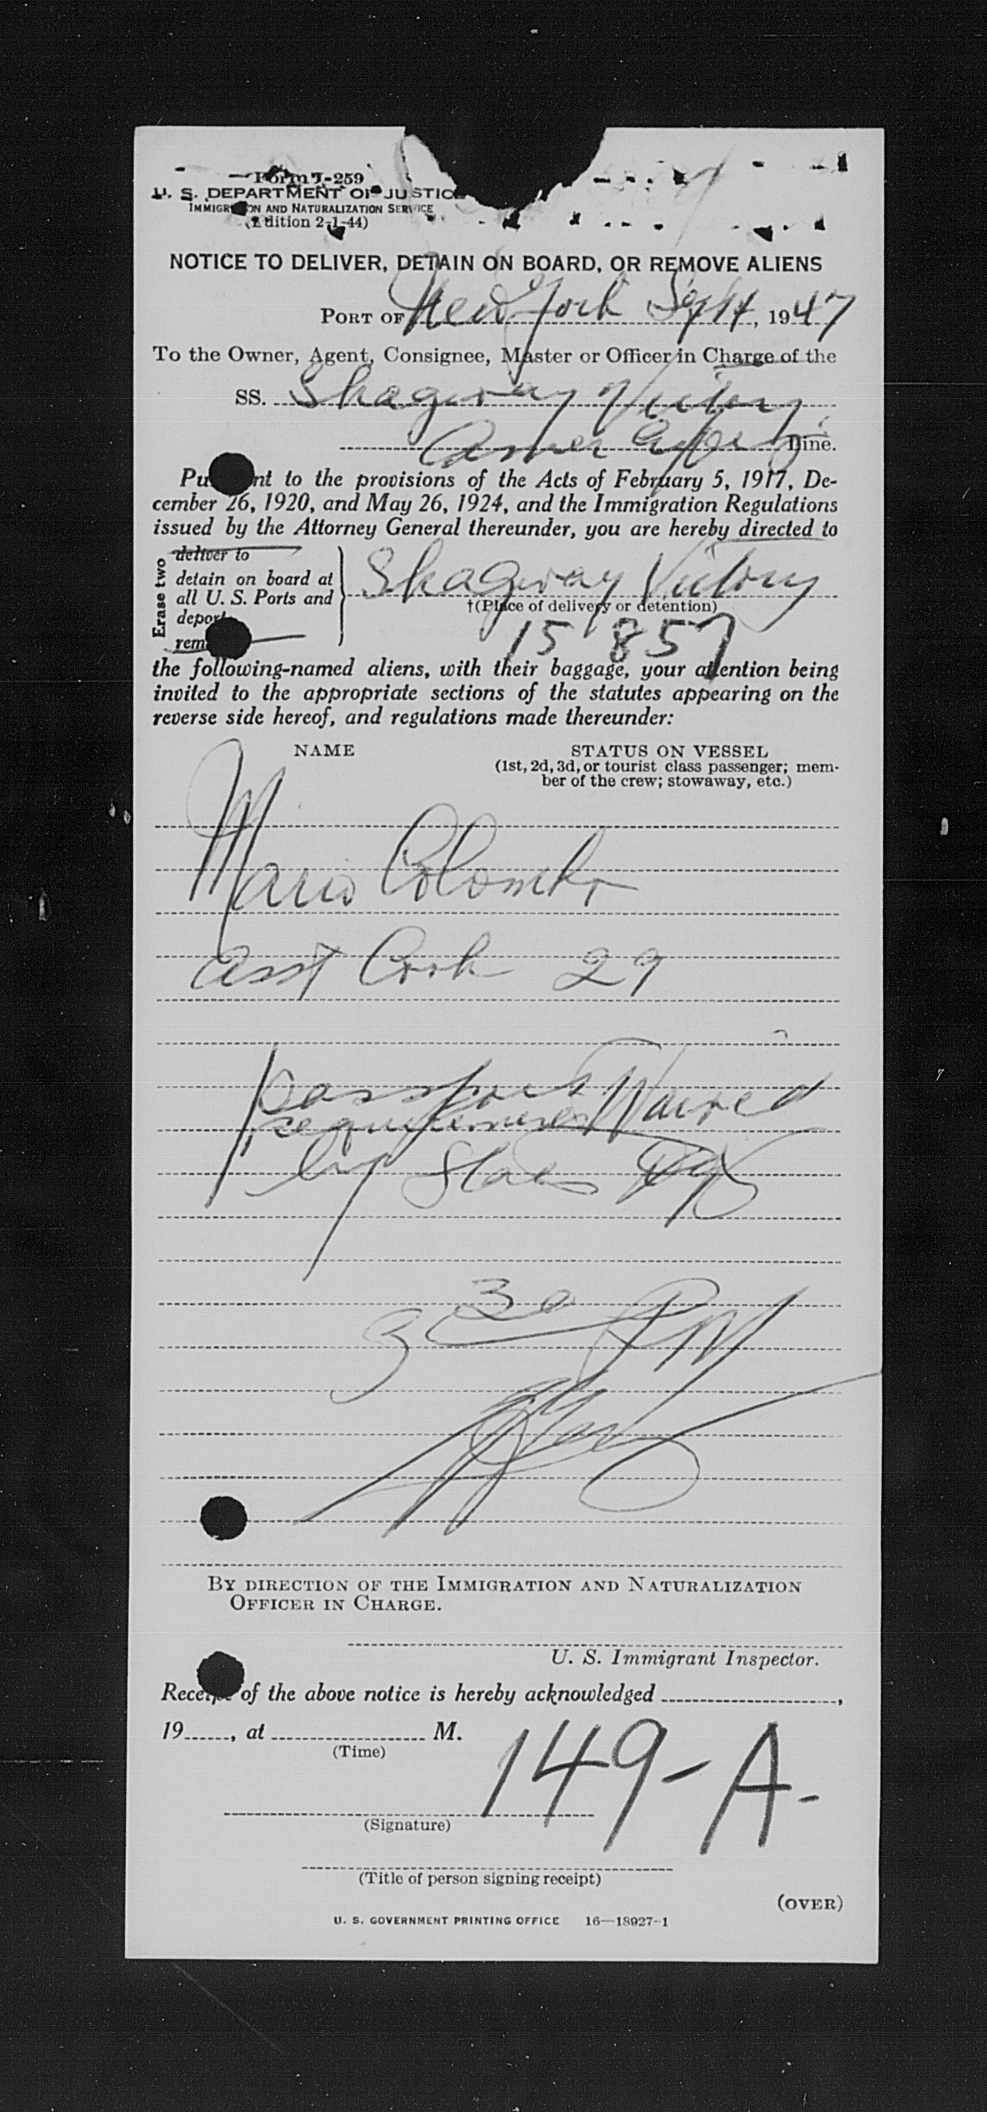 Form I-259
U. S. DEPARTMENT OF JUSTICE
IMMIGRATION AND NATURALIZATION SERVICE
(Edition 2-1-44)
NOTICE TO DELIVER, DETAIN ON BOARD, OR REMOVE ALIENS
PORT OF New York Sept 4, 1947
To the Owner, Agent, Consignee, Master or Officer in Charge of the
SS. Skagway Victory
Amer Line.
Pursuant to the provisions of the Acts of February 5, 1917, De-
cember 26, 1920, and May 26, 1924, and the Immigration Regulations
issued by the Attorney General thereunder, you are hereby directed to
Erase two
deliver to
detain on board at
all U. S. Ports and
deport
remove
Skagway Victory
†(Place of delivery or detention)
15 857
the following-named aliens, with their baggage, your attention being
invited to the appropriate sections of the statutes appearing on the
reverse side hereof, and regulations made thereunder:
NAME STATUS ON VESSEL
(1st, 2d, 3d, or tourist class passenger; mem-
ber of the crew; stowaway, etc.)
Mario Colombo
asst Cook 29
passport
requirements Waived
by State Dept
3 30 PM
BY DIRECTION OF THE IMMIGRATION AND NATURALIZATION
OFFICER IN CHARGE.
U. S. Immigrant Inspector.
Receipt of the above notice is hereby acknowledged ,
19 , at M.
(Time)
149-A-
(Signature)
(Title of person signing receipt)
(OVER)
U. S. GOVERNMENT PRINTING OFFICE 16—18927-1